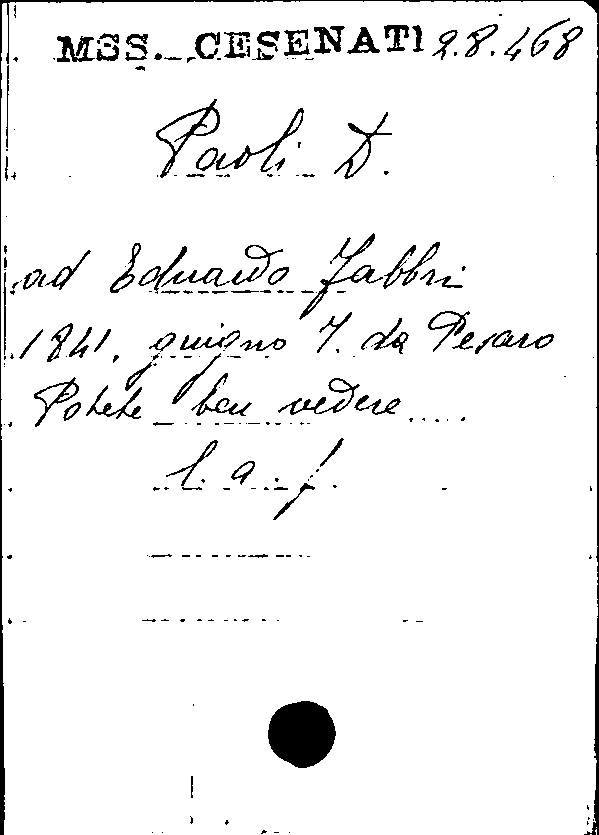 MSS. CESENATI 2.8.468
Paoli D.
ad Eduardo Fabbri
1841. giugno 7. da Pesaro
Potete ben vedere....
l. a. f.